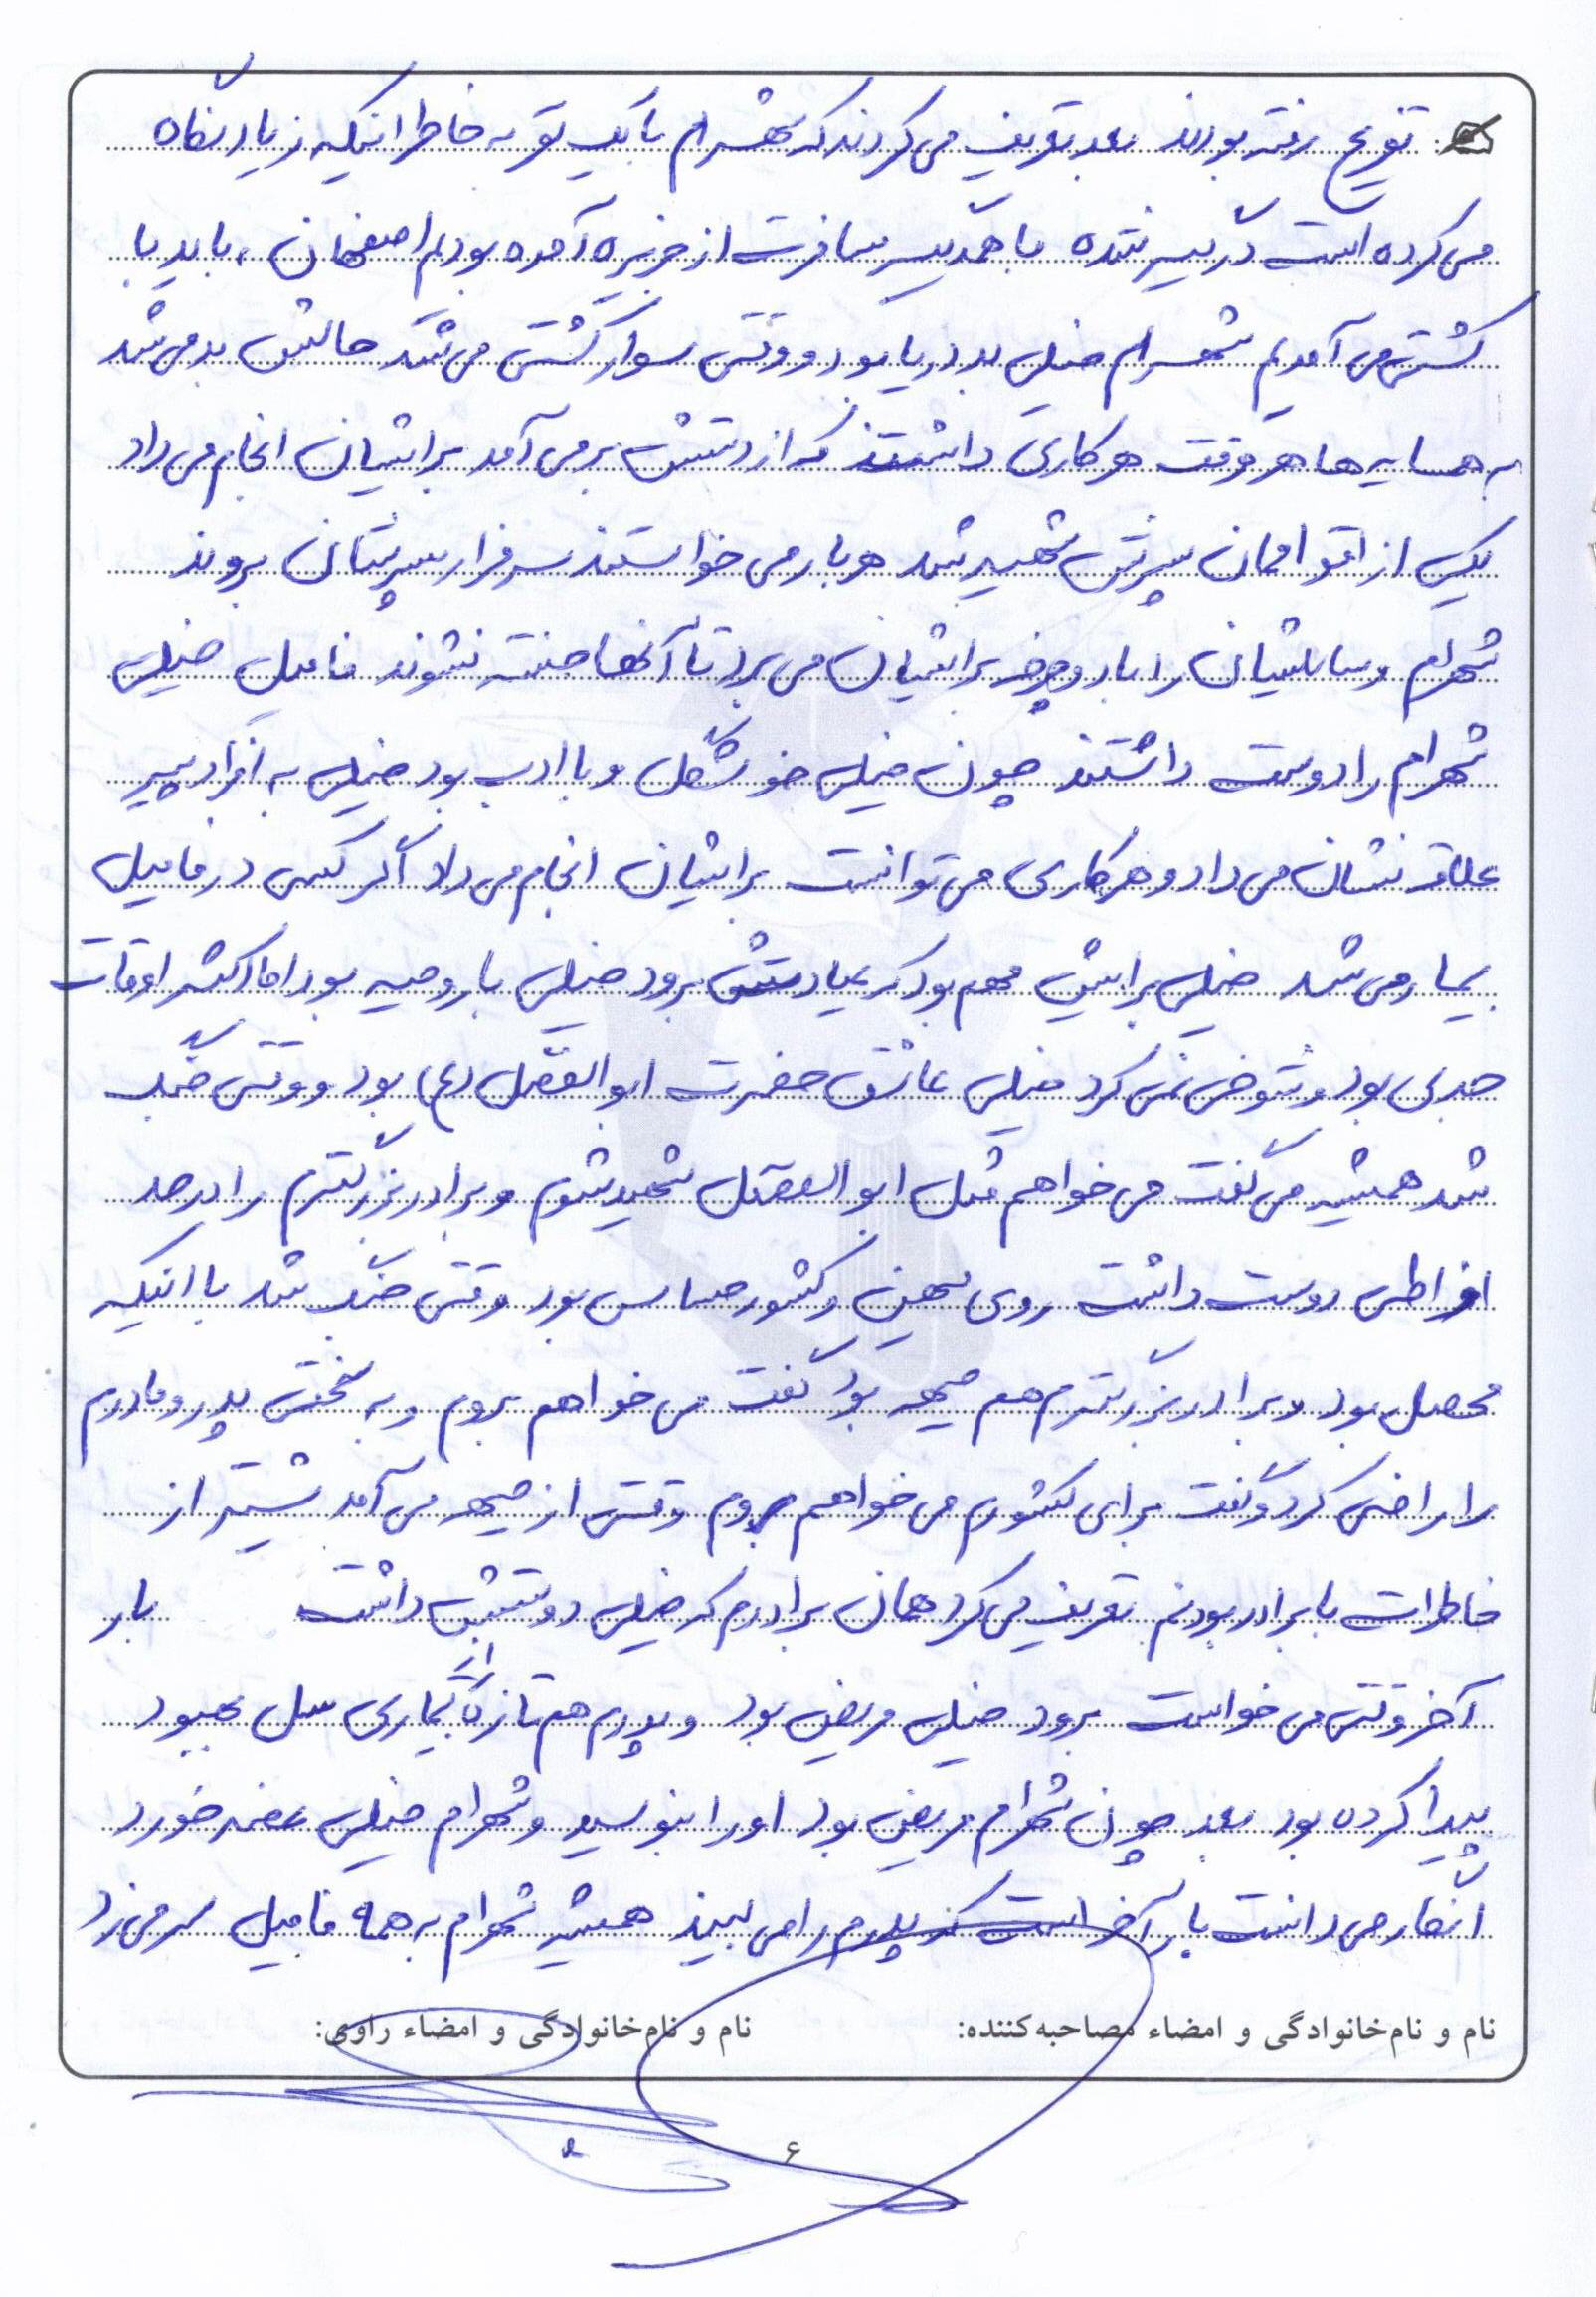 تفریح رفته بودند بعد تعریف می کردند که شهرام با یک به خاطر اینکه زیاد نگاه
می کرده است درگیر شده ما همگی مسافرت از جزیره آمده بودیم اصفهان، باید با
کشتی می آمدیم شهرام خیلی بد دریا بود و وقتی سوار کشتی می شد حالش بد می شد
به همسایه ها هر وقت هر کاری داشتند که از دستش برمی آمد برایشان انجام می داد
یکی از اقوامان پسرش شهید شد هر بار می خواستند سر مزار پسرشان بروند
شهرام وسایلشان را با دوچرخه برایشان می برد تا آنها خسته نشوند فامیل خیلی
شهرام را دوست داشتند چون خیلی خوشگل و با ادب بود خیلی به افراد پیر
علاقه نشان می داد و هر کاری می توانست برایشان انجام می داد اگر کسی در فامیل
بیمار می شد خیلی برایش مهم بود که عیادتش برود خیلی با روحیه بود اما اکثر اوقات
جدی بود و شوخی نمی کرد خیلی عاشق حضرت ابوالفضل (ع) بود و وقتی جنگ
شد همیشه می گفت می خواهم مثل ابوالفضل شهید شوم و برادر بزرگترم را در حد
افراطی دوست داشت روی میهن و کشور حساس بود وقتی جنگ شد با اینکه
محصل بود و برادر بزرگترم هم جبهه بود گفت می خواهم بروم و به سختی پدر و مادرم
را راضی کرد و گفت برای کشورم می خواهم بروم وقتی از جبهه می آمد بیشتر از
خاطرات با برادر بودنم تعریف می کرد همان برادرم که خیلی دوستش داشت بار
آخر وقتی می خواست برود خیلی مریض بود و پدرم هم تازه از بیماری سل بهبود
پیدا کرده بود بعد چون شهرام مریض بود او را نبوسید و شهرام خیلی غصه خورد
انگار می دانست بار آخر است که پدرم را می بیند همیشه شهرام به همه فامیل سر می زد
نام و نام خانوادگی و امضاء مصاحبه کننده: نام و نام خانوادگی و امضاء راوی:
۶